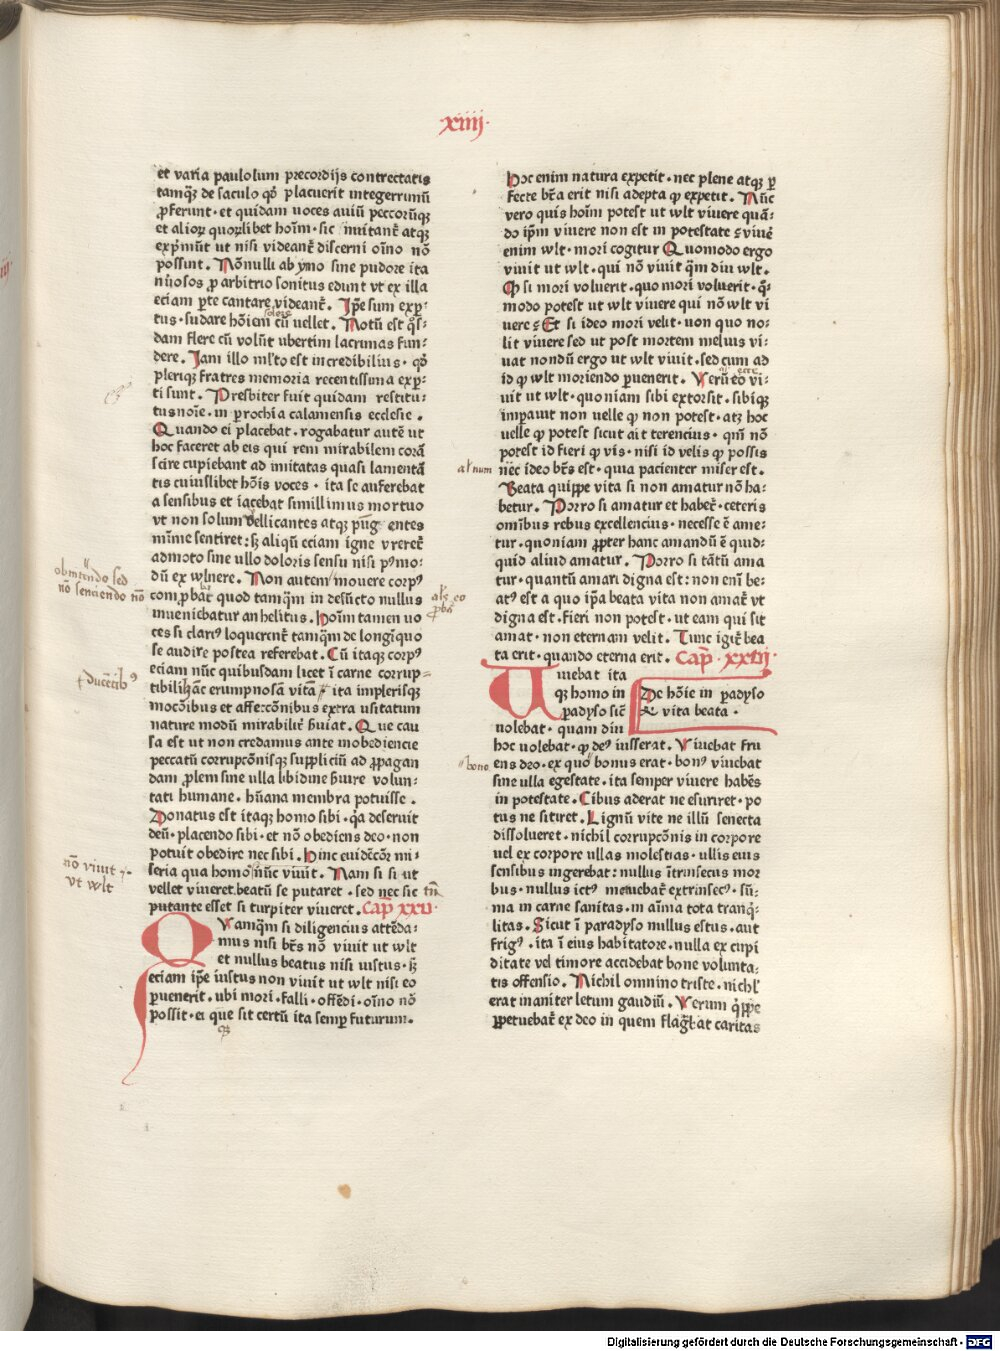 ·xiiij·
et varia paulolum precordijs contrectatis
tamqȝ de saculo qd̕ placuerit integerrimū
ꝓferunt · et quidam uoces auiū peccorūqȝ
et alioꝝ quoꝝlibet hoīm · sic imitant᷑ atqȝ
exp̄mūt ut nisi videant᷑ discerni oīno nō
possint . Nōnulli ab ymo sine pudore ita
nūosos ꝓ arbitrio sonitus edunt vt ex illa
eciam ꝑte cantare videant᷑ . Ip̄e sum exp̄⸗
solere
tus · sudare hōiem cū uellet . Notū est qͦs⸗
dam flere cū volūt ubertim lacrimas fun⸗
dere . Jam illo ml̕to est incredibilius · qd̕
pleriqȝ fratres memoria recentissima exp̄⸗
ti sunt . Presbiter fuit quidam restitu⸗
tus noīe · in ꝑrochia calamensis ecclesie .
Quando ei placebat · rogabatur autē ut
hoc faceret ab eis qui rem mirabilem corā
scire cupiebant ad imitatas quasi lamentā
tis cuiuslibet hōis voces · ita se auferebat
a sensibus et iacebat simillimus mortuo
vt non solum vellicantes atqȝ pūgentes
mīme sentiret : sȝ aliqū eciam igne vreret᷑
admoto sine ullo doloris sensu nisi pꝰmo⸗
dū ex wlnere . Non autem mouere corpꝰ
obnitendo sed
nō senciendo nō
com̄ꝓbat᷑ quod tamqͣm in defūcto nullus
inueniebatur anhelitus . Hoīm tamen uo
ces si clariꝰ loquerent᷑ tamqͣm de longiquo
se audire postea referebat . Cū itaqȝ corpꝰ
eciam nūc quibusdam licet ī carne corrup⸗
ducētibꝰ
tibili hāc erumpnosam vitā ita implerisqȝ
mocōibus et affeccōnibus extra usitatum
nature modū mirabilit᷑ ẜuiat . Que cau
sa est ut non credamus ante inobediencie
peccatū corrupcōnisqȝ suppliciū ad ꝓpagan
dam ꝓlem sine ulla libidine ẜuire volun⸗
tati humane . hūana membra potuisse .
Donatus est itaqȝ homo sibi · qͥa deseruit
deū · placendo sibi · et nō obediens deo · non
potuit obedire nec sibi . Hinc euidēcōr mi⸗
nō viuit
vt wlt
seria qua homo nūc viuit . Nam si si ut
vellet viueret beatū se putaret . sed nec sic tn̄
putante esset si turpiter viueret . Cap̄ xxv·
Qvamqͣm si diligencius attēda⸗
mus nisi bt̄s nō viuit ut wlt
et nullus beatus nisi iustus · sȝ
eciam ip̄e iustus non viuit ut wlt nisi eo
ꝑuenerit . ubi mori · falli · offēdi · oīno nō
possit · ei que sit certū ita semꝑ futurum .
Hoc enim natura expetit · nec plene atqȝ ꝑ
fecte bt̄a erit nisi adepta ꝙ expetit . Nūc
vero quis hoīm potest ut wlt viuere quā⸗
do ip̄m viuere non est in potestate ? viue᷑
enim wlt · mori cogitur Quomodo ergo
viuit ut wlt . qui nō viuit qͣm diu wlt .
Qꝙ si mori voluerit . quo mori voluerit · qͦ⸗
modo potest ut wlt viuere qui nō wlt vi
uere ? Et si ideo mori velit · non quo no⸗
lit viuere sed ut post mortem melius vi⸗
uat nondū ergo ut wlt viuit . sed cum ad
id ꝙ wlt moriendo ꝑuenerit . Verū eō vi⸗
uit ut wlt · quoniam sibi extorsit . sibiqȝ
inꝑauit non uelle ꝙ non potest · atȝ hoc
uelle ꝙ potest sicut ait terencius . qm̄ nō
potest id fieri ꝙ vis · nisi id velis ꝙ possis
al' num
nec ideo bt̄s est · quia pacienter miser est .
Beata quippe vita si non amatur nō ha⸗
betur . Porro si amatur et habet᷑ · ceteris
omībus rebus excellencius · necesse ē ame⸗
tur . quoniam ꝓpter hanc amandū ē quid⸗
quid aliud amatur . Porro si tātū ama
tur · quantū amari digna est : non enī be⸗
al' eo
ꝓbat᷑
atꝰ est a quo ip̄a beata vita non amat᷑ vt
digna est . fieri non potest · ut eam qui sit
amat · non eternam velit . Tunc igit᷑ bea
ta erit · quando eterna erit . Cap̄ · xxvj·
Uiuebat ita
qȝ homo in
ꝑadyso sic̄
De hōie in ꝑadyso
& vita beata ·
uolebat · quam diu
hoc uolebat · ꝙ deꝰ iusserat . Viuebat fru
bono
ens deo · ex quo bonus erat · bonꝰ viuebat
sine ulla egestate . ita semper viuere habēs
in potestate . Cibus aderat ne esuriret · po
tus ne sitiret . Lignū vite ne illū senecta
dissolueret · nichil corrupcōnis in corpore
uel ex corpore ullas molestias · ullis eius
sensibus ingerebat : nullus ītrinsecus mor
bus · nullus ictꝰ metuebat᷑ extrinsecꝰ · sū⸗
ma in carne sanitas · in aīma tota tranqͥ⸗
litas . Sicut ī paradyso nullus estus · aut
frigꝰ · ita ī eius habitatore · nulla ex cupi
ditate vel timore accidebat bone volunta⸗
tis offensio . Nichil omnino triste · nichl̕
erat inaniter letum gaudiū . Verum qͥppe
ꝑpetuebat᷑ ex deo in quem flagͣbat caritas
Digitalisierung gefördert durch die Deutsche Forschungsgemeinschaft - DFG